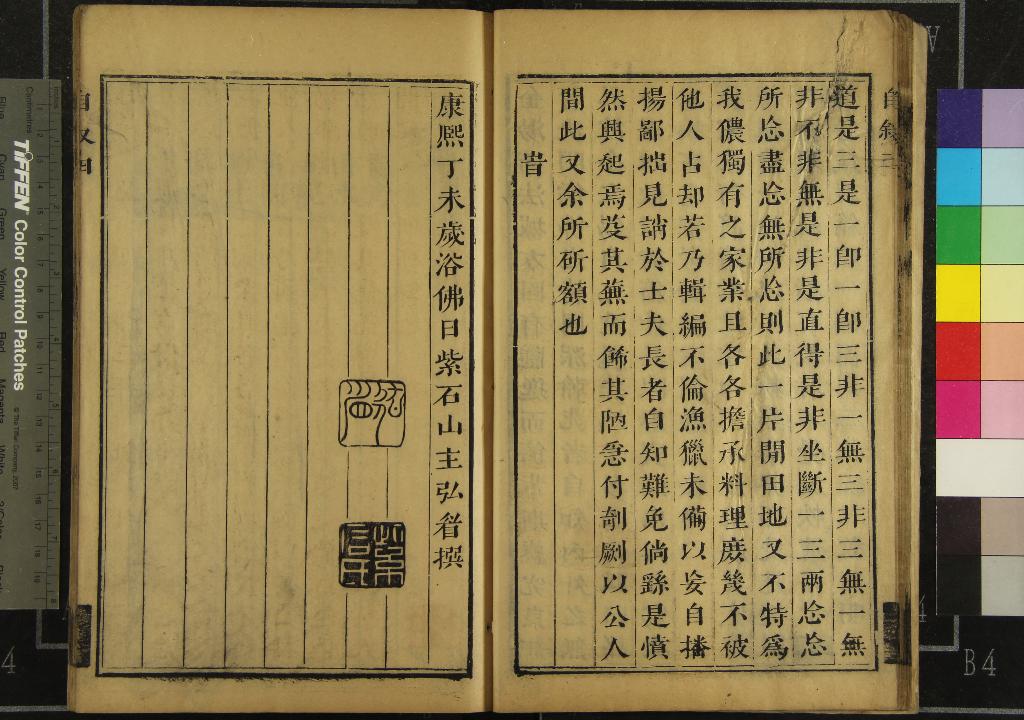 自敘三
道是三是一卽一卽三非一無三非三無一無
非不非無是非是直得是非坐斷一三兩忩忩
所忩盡忩無所忩則此一片閒田地又不特爲
我儂獨有之家業且各各擔承料理庶幾不被
他人占却若乃輯編不倫漁獵未備以妄自播
揚鄙拙見誚於士夫長者自知難免倘繇是憤
然興起焉芟其蕪而飾其陋悉付剞劂以公人
間此又余所斫額也
旹
康熙丁未歲浴佛日紫石山主弘䇓撰
自叙四
TIFFEN Color Control Patches
© The Tiffen Company, 2007
Centimetres
Inches
Blue
Cyan
Green
Yellow
Red
Magenta
White
3/Color
Black
B4
4
A